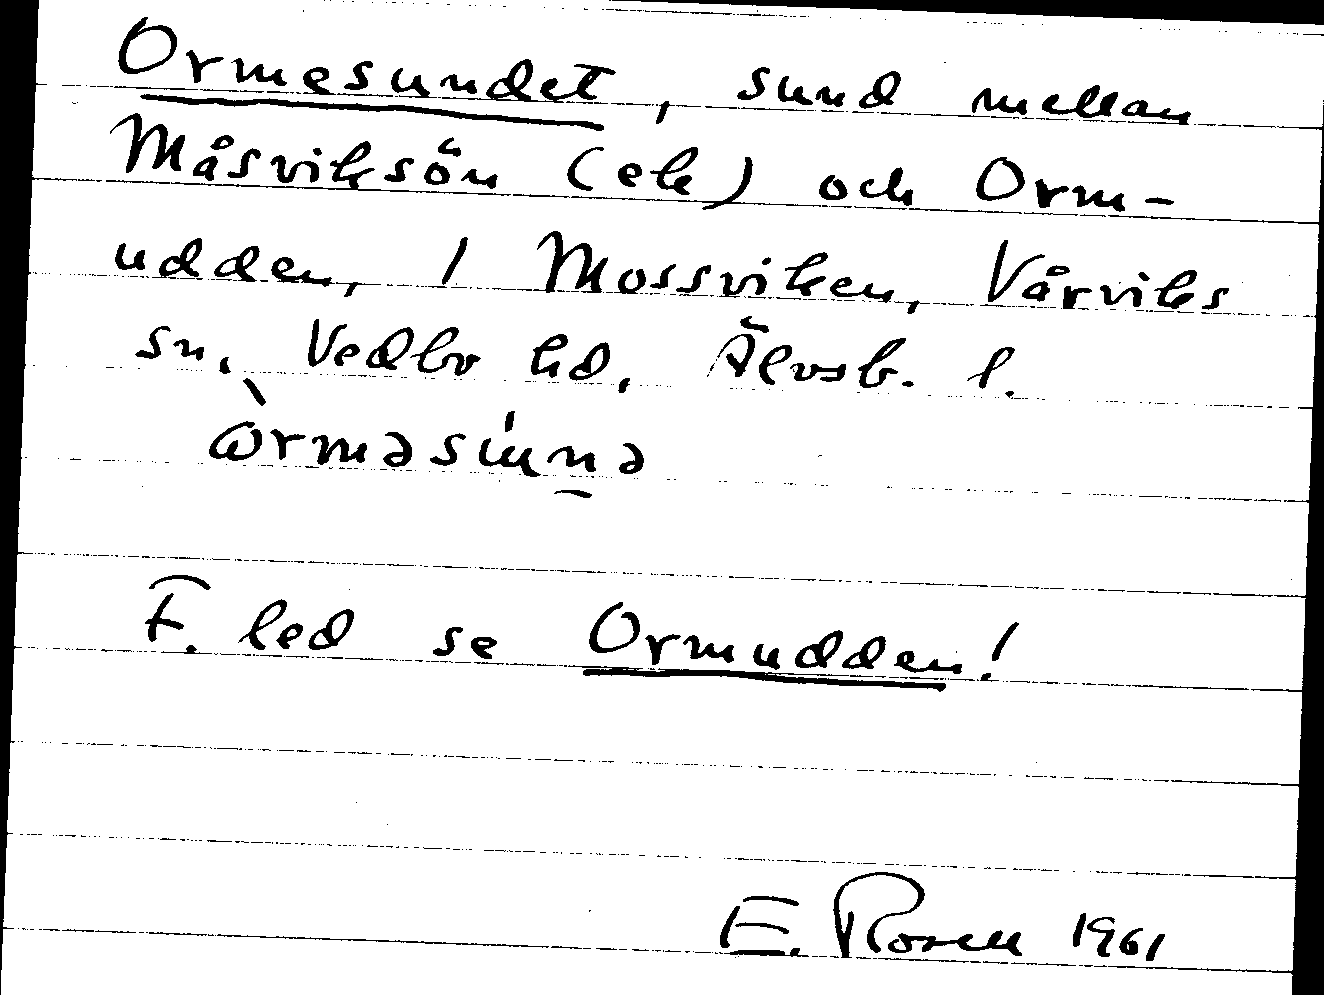 Ormesundet, sund mellan
Måsviksön (ek) och Orm-
udden, i Mossviken, Vårviks
sn, Vedbo hd, Älvsb. l.
F. led se Ormudden!
E. Rosell 1961